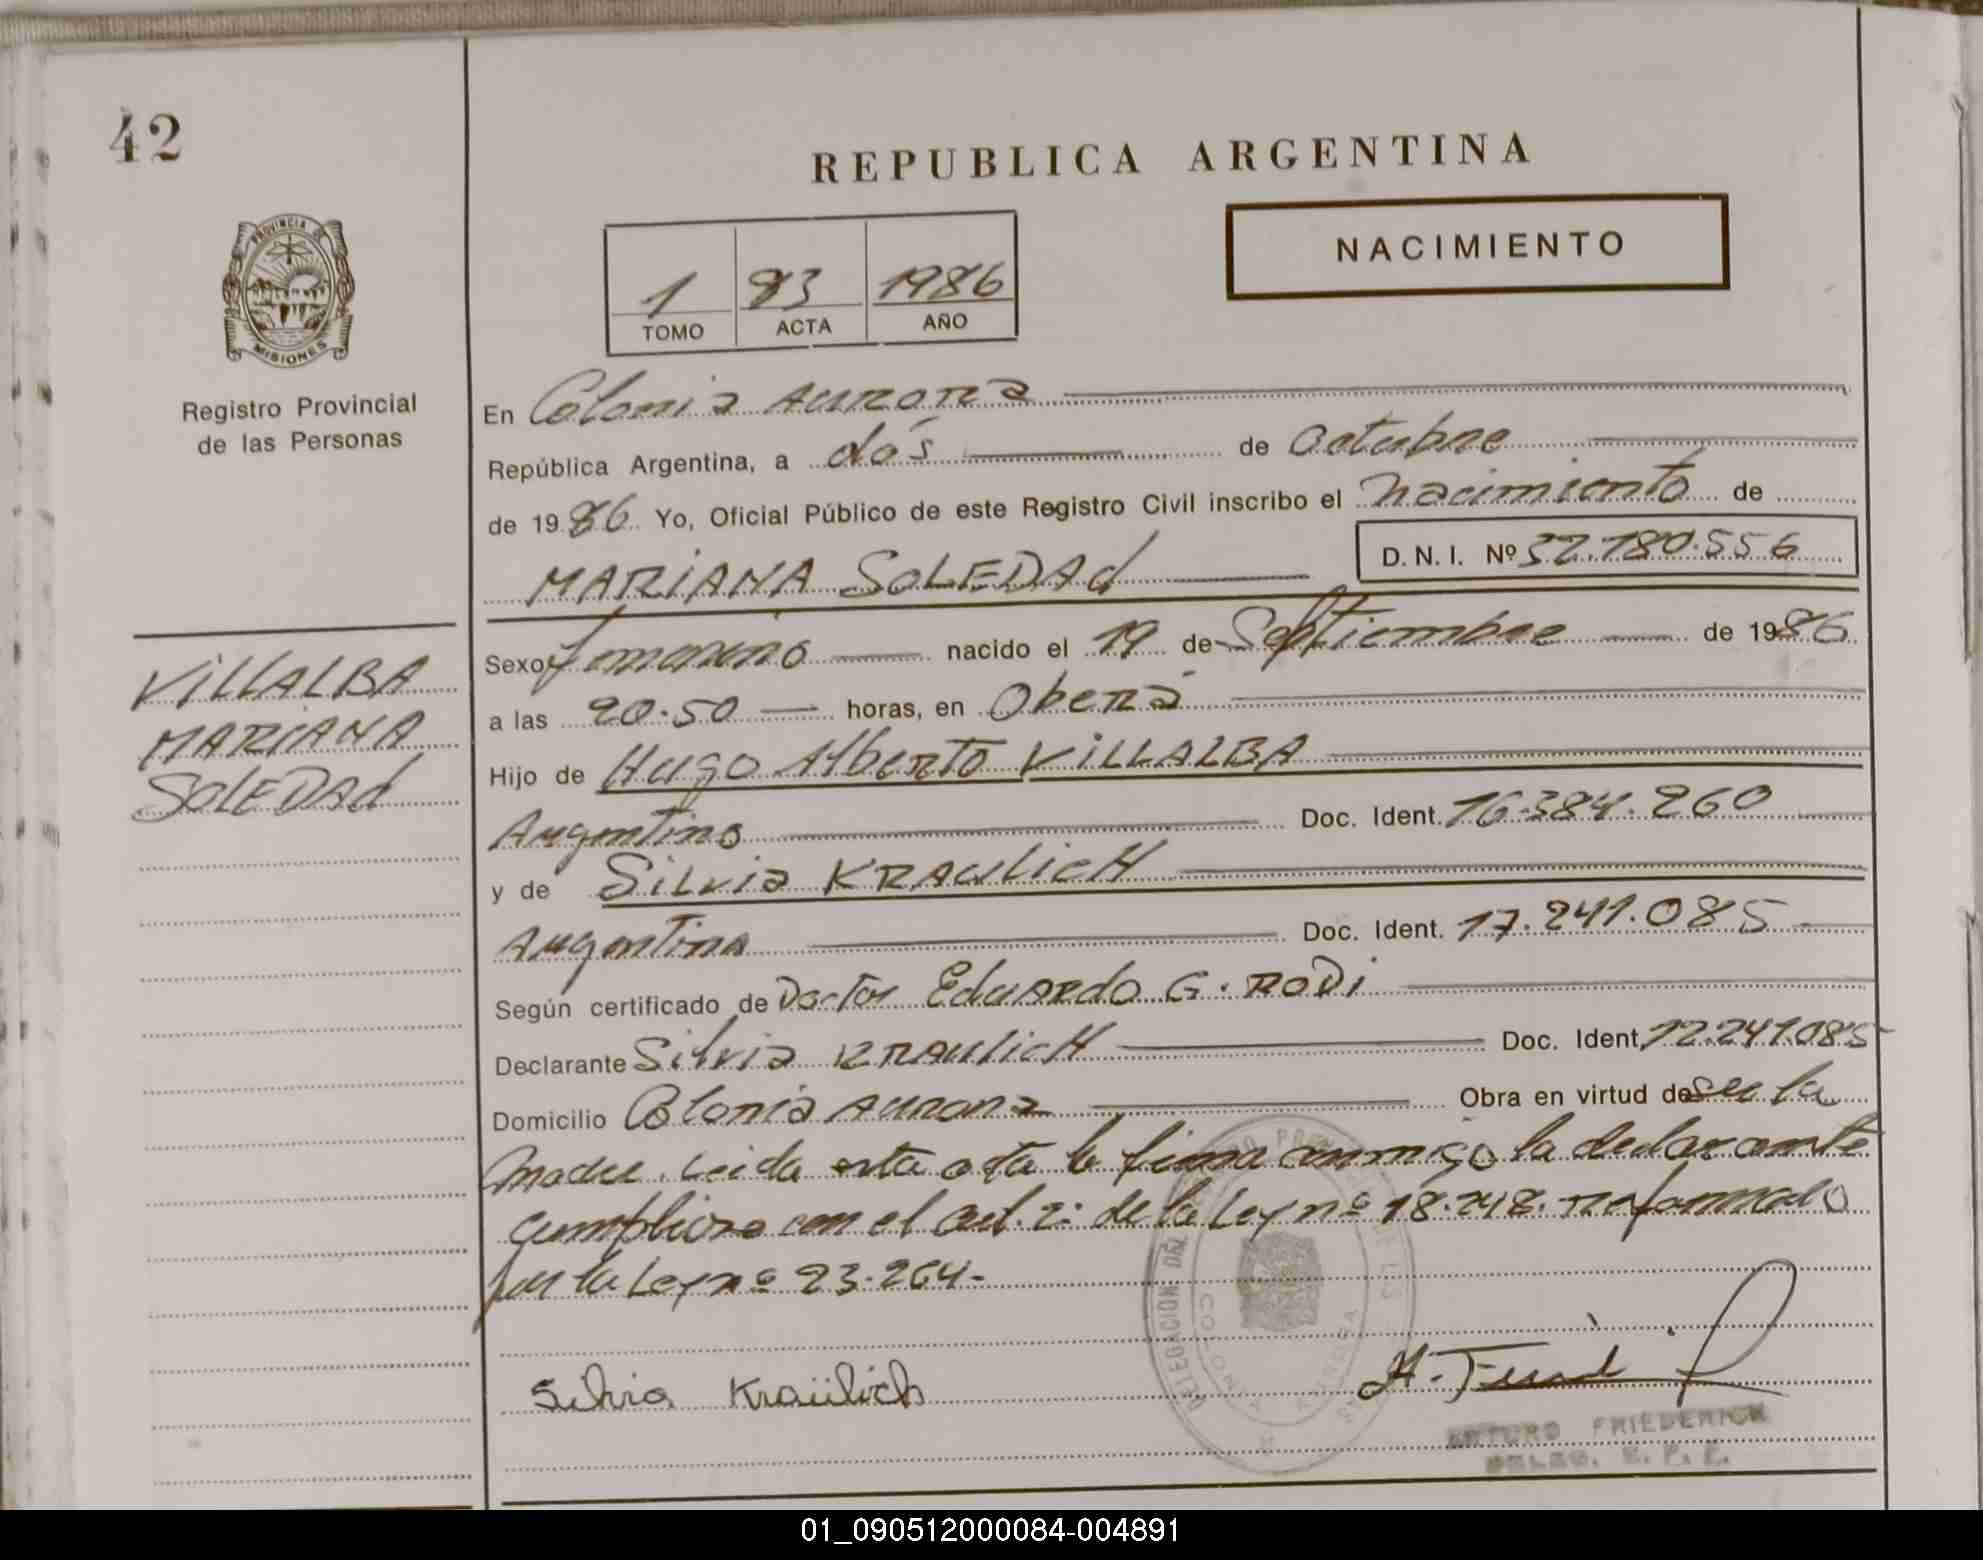 42
REPUBLICA ARGENTINA
NACIMIENTO
1 83 1986
TOMO ACTA AÑO
PROVINCIA DE
MISIONES
Registro Provincial
de las Personas
En Colonia Aurora
República Argentina, a dós de Octubre
de 1986 Yo, Oficial Público de este Registro Civil inscribo el nacimiento de
MARIANA SOLEDAd D. N. I. Nº 32.180.556
Sexo femenino nacido el 19 de Septiembre de 1986
a las 20.50 horas, en Oberá
Hijo de Hugo Alberto VILLALBA
Argentino Doc. Ident. 16.384.260
y de Silvia KRAULICH
Argentina Doc. Ident. 17.241.085
Según certificado de Doctor Eduardo G. RODI
Declarante Silvia KRAULICH Doc. Ident. 17.241.085
Domicilio Colonia Aurora Obra en virtud de ser la
madre. Leida esta acta la firma conmigo la declarante
cumpliose con el art. 2: de la Ley nº 18.248. reformado
por la Ley nº 23.264.-
VILLALBA
MARIANA
SOLEDAd
Silvia Kraülich
DELEGACION DEL REGISTRO PROVINCIAL DE LAS
COLONIA AURORA
ARTURO FRIEDERICH
DELEG. R. P. P.
01_090512000084-004891